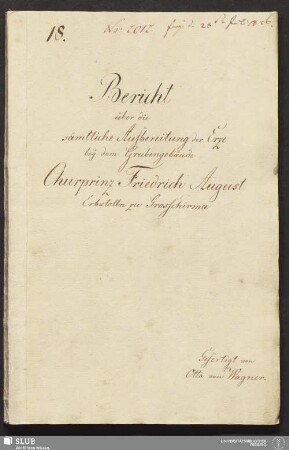 18.
No. 2012.
Bericht
über die
sämtliche Aufbereitung der Erze
bey dem Grubengebäude
Churprinz Friedrich August
Erbstolln zu Grosschirma
Gefertigt von
Otto von Wagner.
SLUB
Wir führen Wissen.